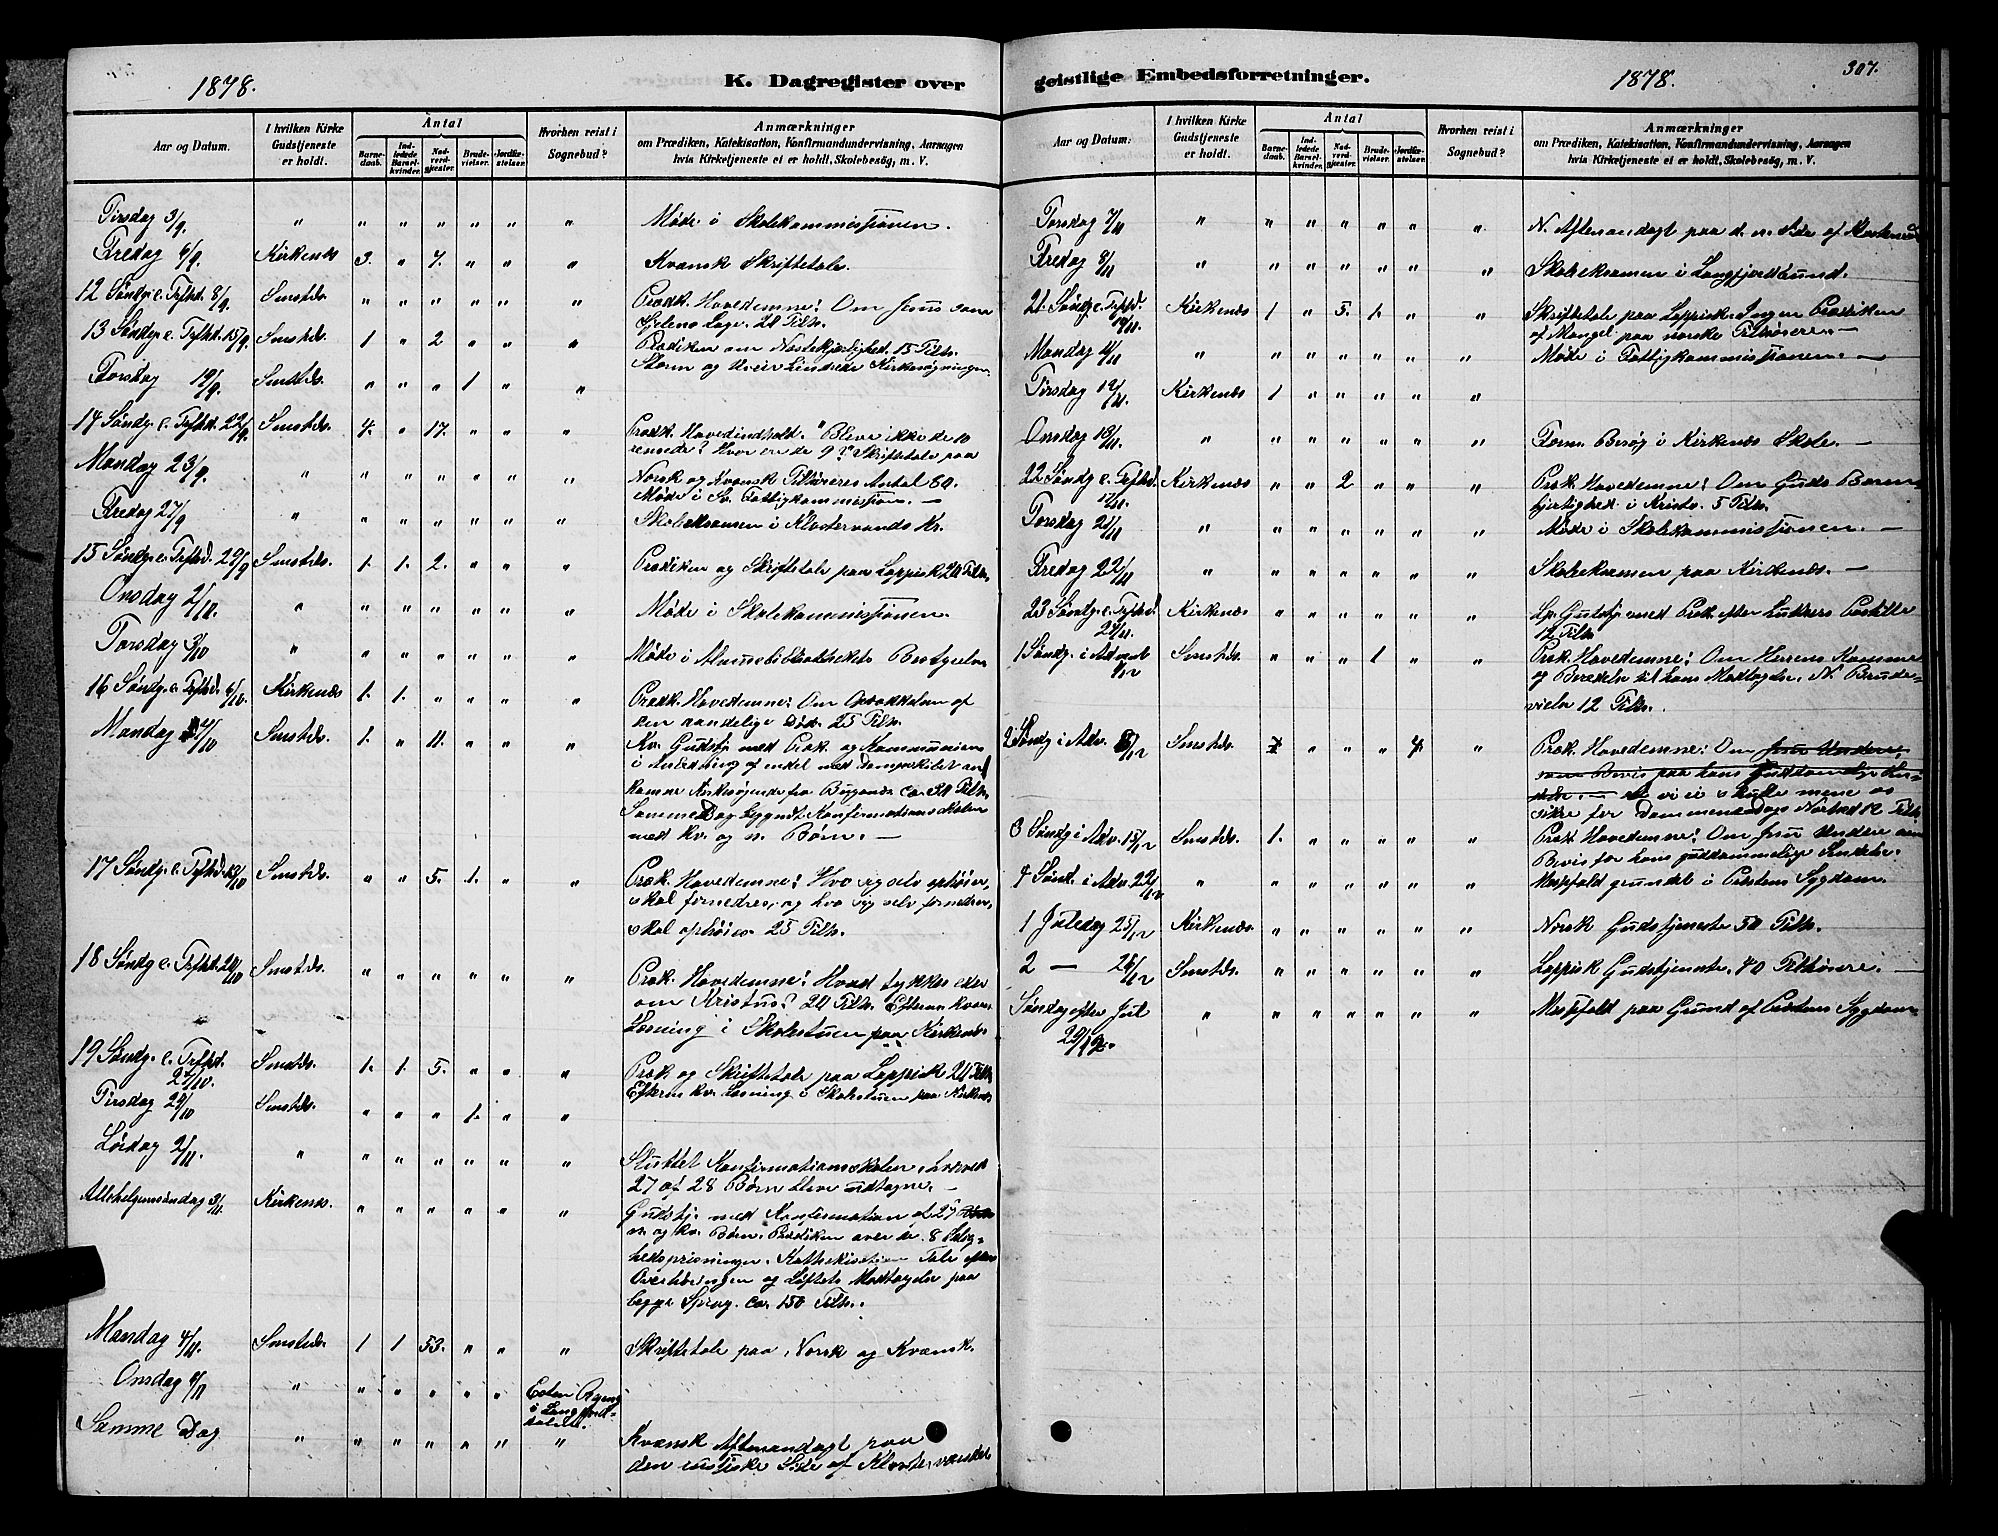 1878.
K. Dagregister over
Aar og Datum.
I hvilken Kirke Gudstjeneste er holdt.
Antal
Barnedaab.
Indledede Barselkvinder.
Nadverdgjester.
Brudevielser.
Jordfæstelser.
Hvorhen reist i Sognebud?
Anmærkninger
om Prædiken, Katekisation, Konfirmandundervisning, Aarsagen
hvis Kirketjeneste ei er holdt, Skolebesög, m. V.
Tirsdag 3/9. " " " " " " " Møde i Skolekommissionen.
Fredag 6/9. Kirkenæs 3. " 7. " " " Kvænsk Skriftetale.
12 Søndg. e. Trefhd. 8/9. Smstds. " " " " " " Præk. Hovedemne: Om Jesus som
Sjelens Læge. 20 Tilh.
13 Søndg. e. Trefhd. 15/9. Smstds. 1 " 2 " " " Prædiken om Næstekjærlighed. 15 Tilh.
Storm og Uveir hindrede Kirkesøgningen.
Torsdag 19/9. Smstds. " " " 1 " "
14 Søndg. e. Trefhd. 22/9. Smstds. 4. " 17. " " " Præk. Hovedindhold. "Bleve ikke de 10
rensede? Hvor ere de 9?" Skriftetale paa
Norsk og Kvænsk Tilhøreres Antal 80.
Mandag 23/9. " " " " " " " Møde i Sv. Fattigkommission. —
Fredag 27/9 " " " " " " " Skoleeksamen i Klostervands Kr.
15 Søndg. e. Trefhd. 29/9 Smstds. 1. 1. 2. " " " Prædiken og Skriftetale paa Lappisk 20 Tilh.
Onsdag 2/10. " " " " " " " Møde i Skolekommissionen.
Torsdag 3/10 " " " " " " " Møde i Almuebibliothekets Bestyrelse
16 Søndg. e. Trefhd. 6/10. Kirkenæs 1. 1. " " " " Præk. Hovedemne: Om Opvækkelsen af
den aandelige Død. 25 Tilh.
Mandag 7/10 Smstds. 1. " 11. " " " Kv. Gudstj. med Præk. og Kommunion
i Anledning af endel med Dampskibet an-
komne Kirkesøgende fra Bugønæs ca. 30 Tilh.
Samme Dag begyndt Konfirmationsskolen
med kv. og n. Børn. —
17 Søndg. e. Trefhd. 13/10 Smstds. " " 5. 1. " " Præk. Hovedemne: Hvo sig selv ophøier,
skal fornedres, og hvo sig selv fornedrer,
skal ophøies. 25 Tilh.
18 Søndg e. Trefhd. 20/10 Smstds. " " " " " " Præk. Hovedemne: Hvad tykkes eder
om Kristus? 20 Tilh. Efterm. Kvænsk
Læsning i Skolestuen paa Kirkenæs.
19 Søndg. e. Trefhd. 27/10. Smstds. 1. 1. 5. " " " Præk. og Skriftetale paa Lappisk 20 Tilh.
Efterm. kv. Læsning i Skolestuen paa Kirkenæs
Tirsdag 29/10 Smstds. " " " 1. " "
Lørdag 2/11. " " " " " " " Sluttet Konfirmationsskolen, hvorved
27 af 28 Børn bleve udtagne. —
Allehelgensøndag 3/11. Kirkenæs. " " " " " " Gudstj. med Konfirmation af 27
n. og kv. Børn. Prædiken over de 8 Salig-
hedsprisninger. Kathekisation Tale efter
Overhøringen og Løftets Modtagelse paa
begge Sprog. ca. 150 Tilh.
Mandag 4/11. Smstds. 1 1 53. " " " Skriftetale paa Norsk og Kvænsk.
Onsdag 6/11 " " " " " "
i Langfjord-
dalen.
Samme Dag " " " " " " " Kvænsk Aftenandagt paa
den russiske Side af Klostervandet
geistlige Embedsforretninger.
1878.
307.
Aar og Datum.
I hvilken Kirke Gudstjeneste er holdt.
Antal
Barnedaab.
Indledede Barselkvinder.
Nadverdgjester.
Brudevielser.
Jordfæstelser.
Hvorhen reist i Sognebud?
Anmærkninger
om Prædiken, Katekisation, Konfirmandundervisning, Aarsagen
hvis Kirketjeneste ei er holdt, Skolebesög, m. V.
Torsdag 7/11 " " " " " " " N. Aftenandagt paa d. n. Side af
Fredag 8/11 " " " " " " " Skoleeksamen i Langfjordbund.
21 Søndg. e. Trefhd. 10/11. Kirkenæs 1 " 5. 1. " " Skriftetale paa Lappisk. Ingen Prædiken
af Mangel paa norske Tilhørere. —
Mandag 11/11 " " " " " " " Møde i Fattigkommissionen. —
Tirsdag 12/11. Kirkenæs 1 " " " " "
Onsdag 13/11. " " " " " " " Form. Besøg i Kirkenæs Skole. —
22 Søndg. e. Trefhd. 17/11. Kirkenæs " " 2 " " " Præk. Hovedemne: Om Guds Barm-
hjertighed i Kristo. 5 Tilh.
Torsdag 21/11 " " " " " " " Møde i Skolekommissionen. —
Fredag 22/11 " " " " " " " Skoleeksamen paa Kirkenæs. —
23 Søndg. e. Trefhd. 24/11. Kirkenæs " " " " " " Lp. Gudstj. med Præk. efter Luthers Postille
12 Tilh.
1 Søndg. i Advent 1/12 Smstds. " " " 1 " " Præk. Hovedemne: Om Herrens Komme
og Beredelse til hans Modtagelse. N. Brude-
vielse 12 Tilh.
2 Søndg i Adv. 8/12 Smstds. " " " 4. " Præk. Hovedemne: Om Jesu Undere,
som Bevis paa hans Guddommelige Sen-
delse. — at vi ei skulle mene os
sikre for Dommens Dag. Norsk 12 Tilh.
3 Søndg i Adv. 15/12 Smstds. 1. " " " " " Præk. Hovedemne: Om Jesu Undere som
Bevis for hans guddommelige Sendelse.
4 Sønd. i Adv. 22/12 " " " " " " " Messfald grundet i Præstens Sygdom.
1 Juledag 25/12 Kirkenæs. " " " " " " Norsk Gudstjeneste 50 Tilh.
2 — 26/12 Smstds. " " " " " " Lappisk Gudstjeneste. 40 Tilhørere. —
Søndag efter Jul 29/12. " " " " " " " Messfald paa Grund af Præstens Sygdom